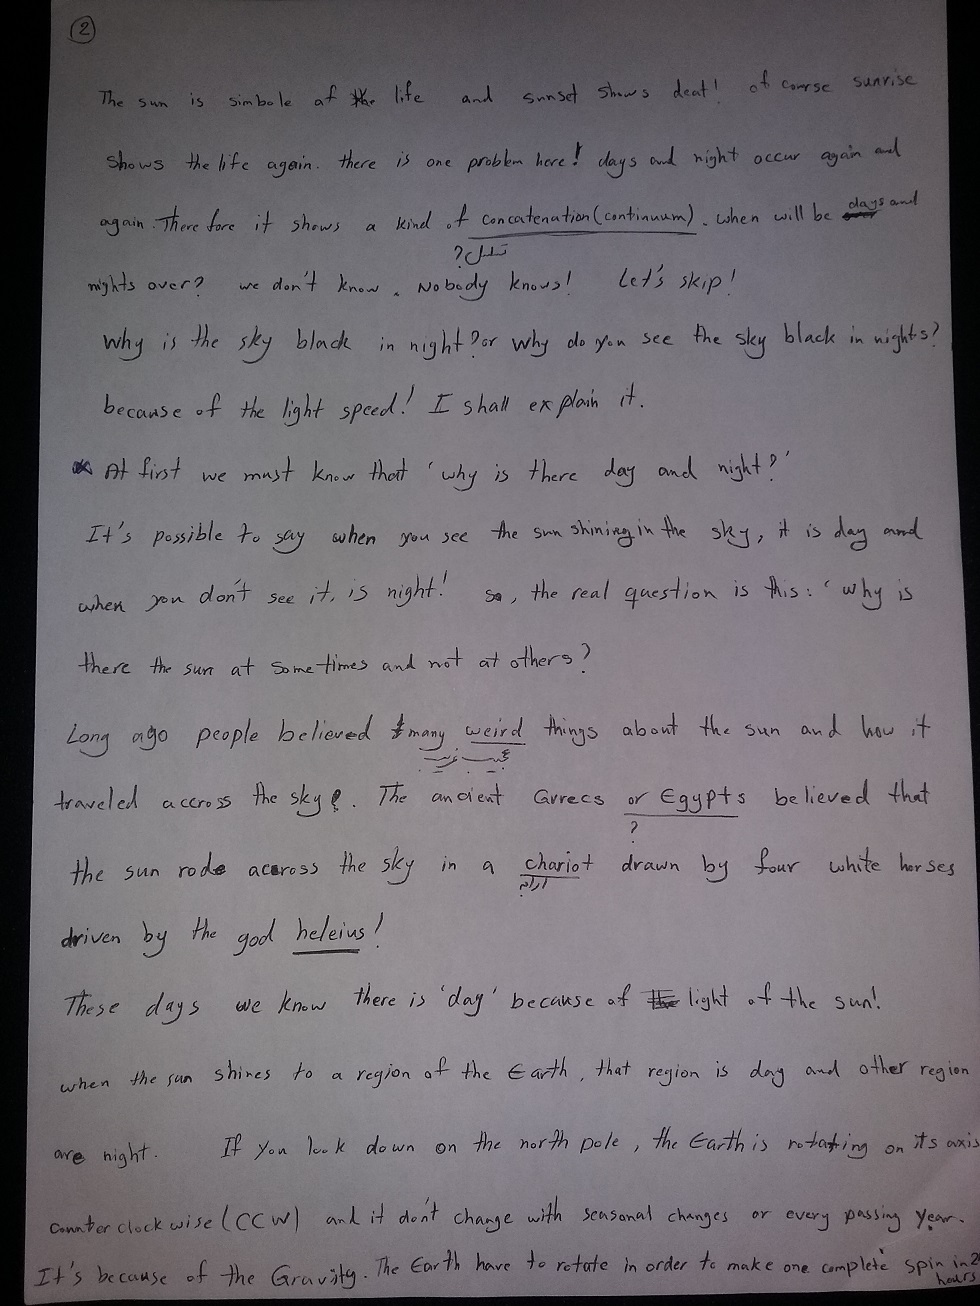 2
The sun is simbole of the life and sunset shows deat! of course sunrise
shows the life again. there is one problem here! days and night occur again and
again. There fore it shows a kind of concatenation (continuum). when will be days and
?
nights over? we don't know. Nobody knows! Let's skip!
Why is the sky black in night? or why do you see the sky black in nights?
because of the light speed! I shall explain it.
At first we must know that 'why is there day and night?'
It's possible to say when you see the sun shining in the sky, it is day and
when you don't see it, is night! So, the real question is this: 'why is
there the sun at some times and not at others?
Long ago people believed many weird things about the sun and how it
عجیب غریب
traveled accross the sky. The ancient Grrecs or Egypts believed that
?
the sun rode across the sky in a chariot drawn by four white horses
driven by the god heleius!
These days we know there is 'day' because of light of the sun!
when the sun shines to a region of the Earth, that region is day and other region
are night. If you look down on the north pole, the Earth is rotating on its axis
counter clock wise (CCW) and it don't change with seasonal changes or every passing year.
It's because of the Gravity. The Earth have to rotate in order to make one complete spin in
hours